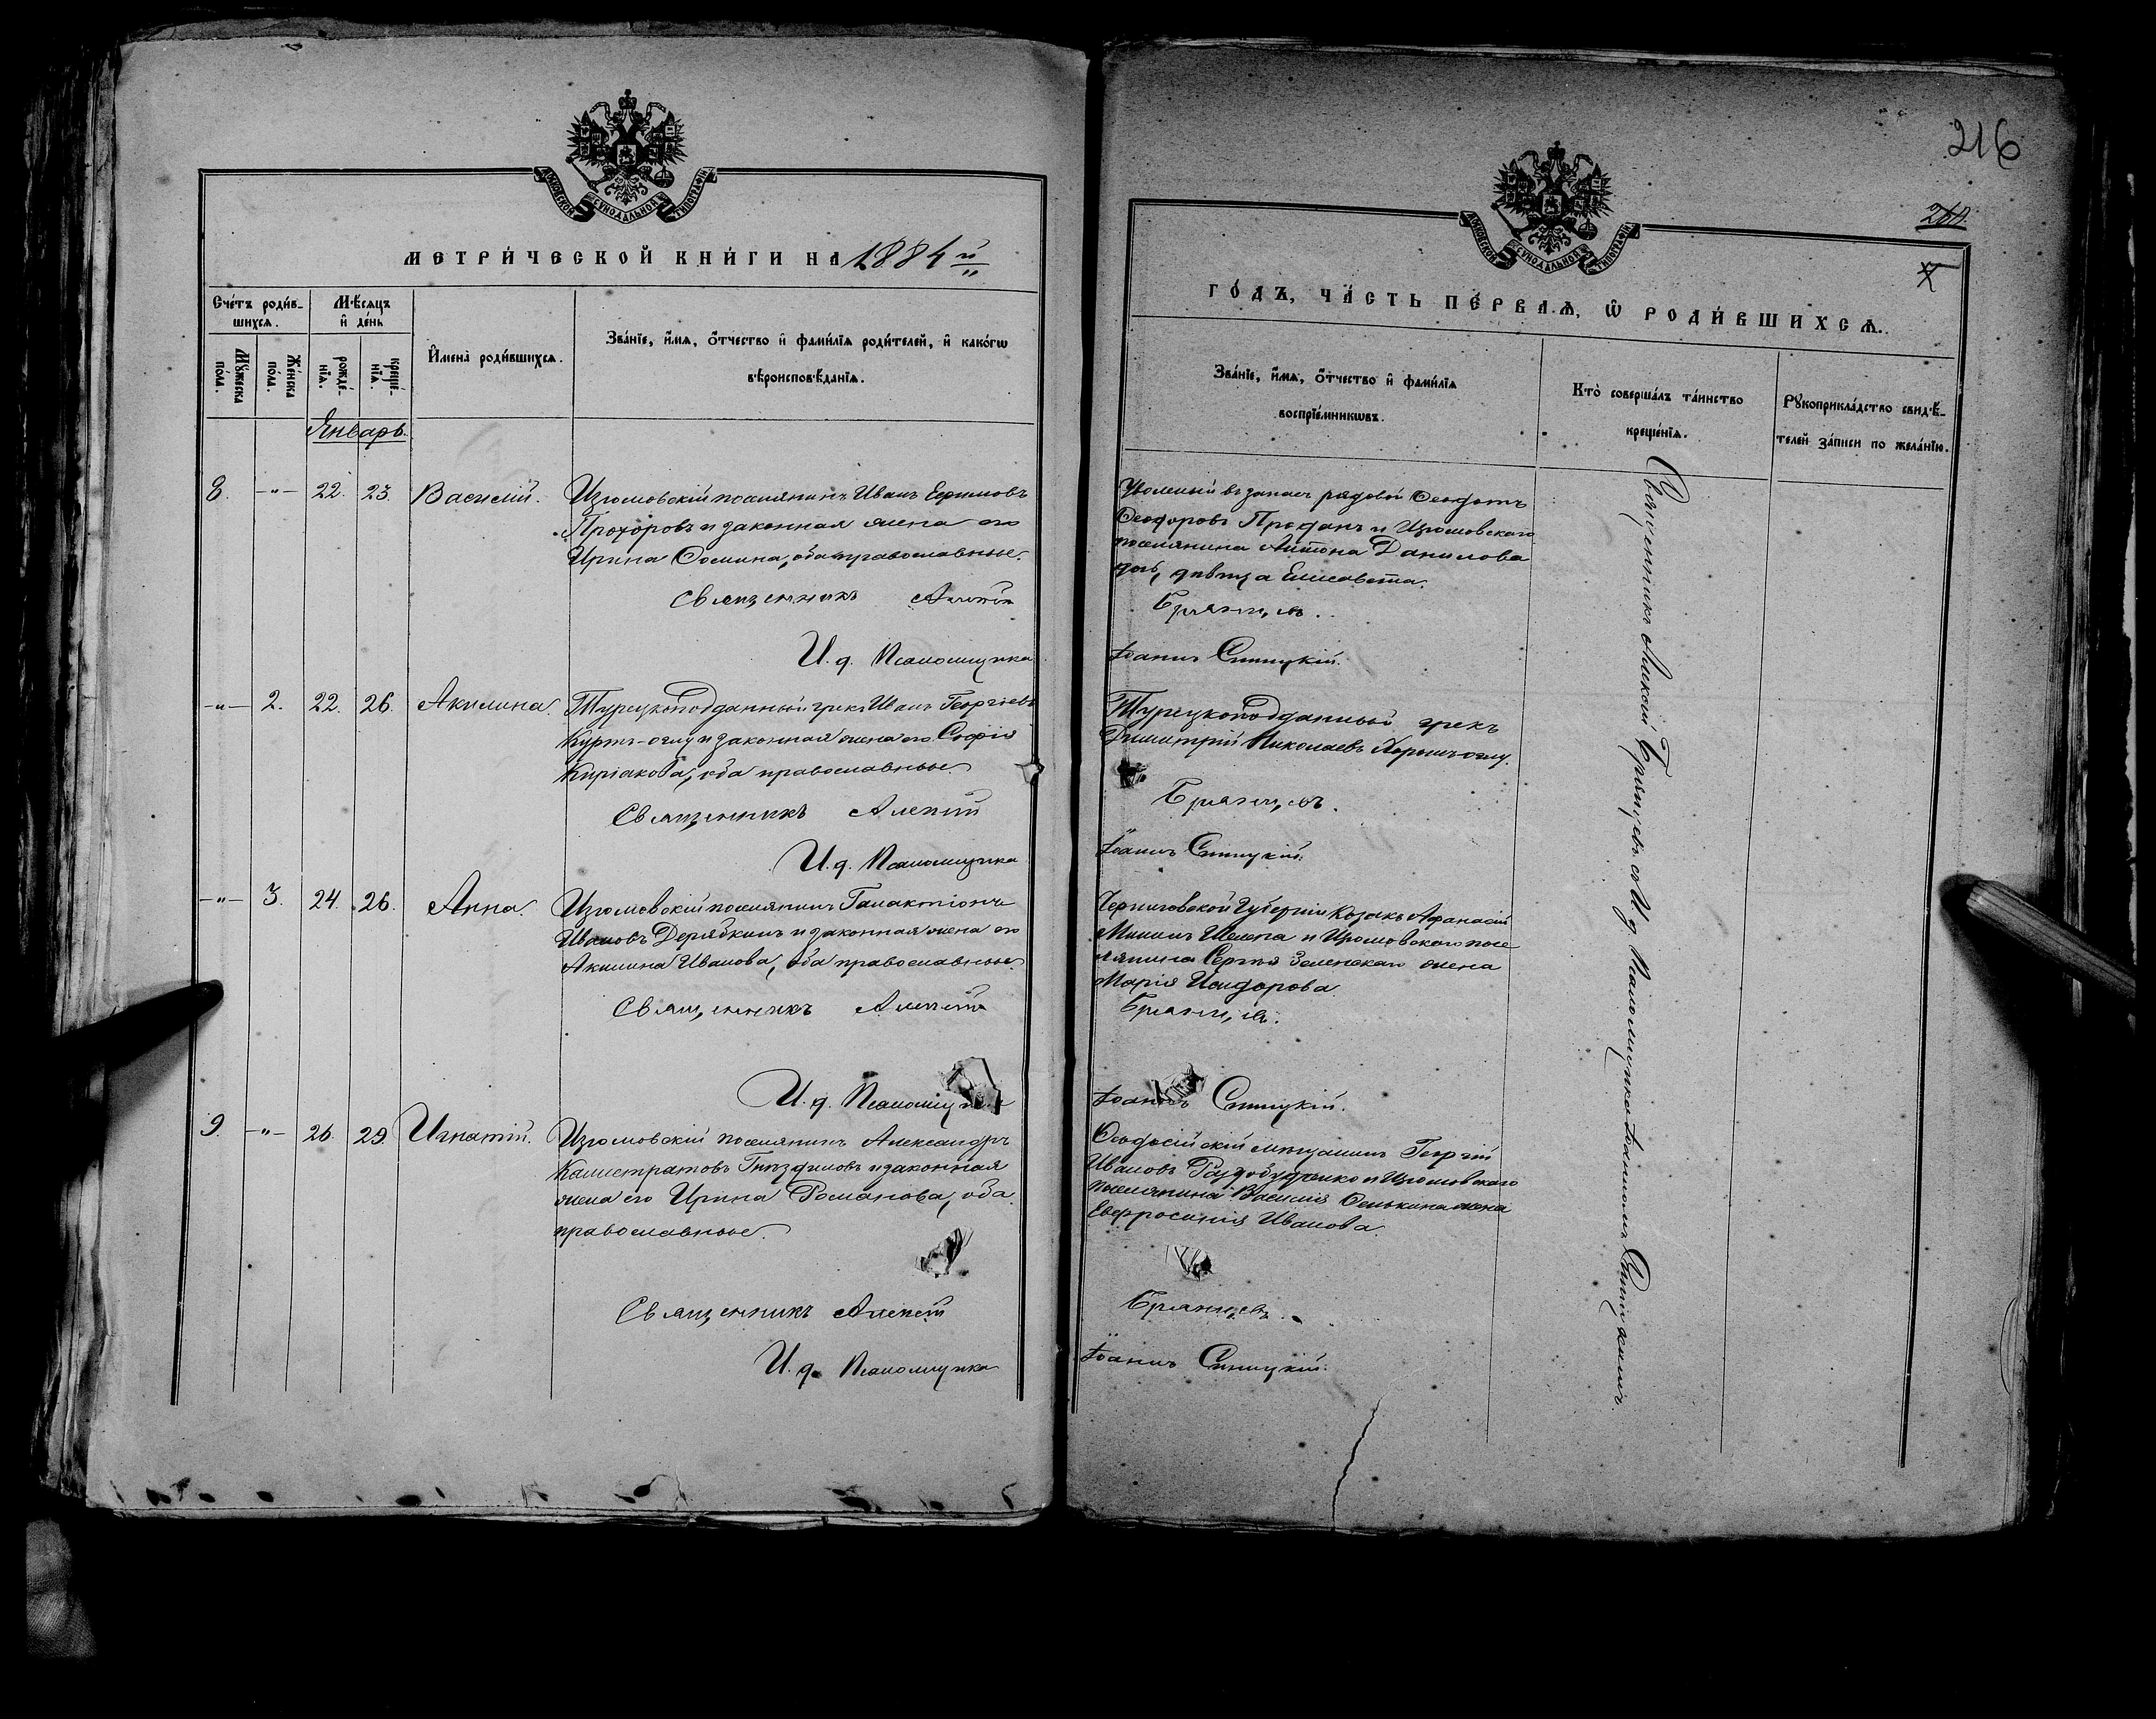 МОСКОВСКОЙ СѴНОДАЛЬНОЙ ТИПОГРАФІИ
МЕТРИ́ЧЕСКОЙ КНИ́ГИ НА 1884 й
Сче́тъ роди́в-
шихсѧ.
Мѣ́сѧцъ
и҆ де́нь
Мꙋ́жеска
по́ла.
Же́нска
по́ла.
рожде́-
нїѧ.
креще́-
нїѧ.
И҆мена̀ роди́вшихсѧ.
Зва́нїе, и҆́мѧ, ѻ҆́тчество и҆ фами́лїѧ роди́телей, и҆ како́гѡ
вѣроисповѣ́данїѧ.
Январь.
8. -"- 22. 23. Василій. Изюмовскій поселянинъ Иванъ Ефимовъ
Прохоровъ и законная жена его
Ирина Ѳомина, оба православные.
Священникъ Алексій
И. д. Псаломщика
-"- 2. 22. 26. Акилина. Турецкоподданный грекъ Иванъ Георгіевъ
Куртъ-оглу и законная жена его Софія
Киріакова, оба православные.
Священникъ Алексій
И. д. Псаломщика
-"- 3. 24. 26. Анна. Изюмовскій поселянинъ Галактіонъ
Ивановъ Дерябкинъ и законная жена его
Акилина Иванова, оба православные.
Священникъ Алексій
И. д. Псаломщика
9. -"- 26. 29. Игнатій. Изюмовскій поселянинъ Александръ
Калистратовъ Гнѣздиловъ и законная
жена его Ирина Романова, оба
православные.
Священникъ Алексій
И. д. Псаломщика
216
МОСКОВСКОЙ СѴНОДАЛЬНОЙ ТИПОГРАФІИ
ГО́ДЪ, ЧА́СТЬ ПЕ́РВАѦ, Ѡ҆ РОДИ́ВШИХСѦ.
Зва́нїе, и҆́мѧ, ѻ҆́тчество и҆ фами́лїѧ
воспрїе́мникѡвъ.
Кто̀ соверша́лъ та́инство
креще́нїѧ.
Рꙋкоприкла́дство свидѣ́-
телей за́писи по жела́нїю.
Уволенный въ запасъ рядовой Ѳеодотъ
Ѳеодоровъ Проданъ и Изюмовскаго
поселянина Антона Данилова
дочь, дѣвица Елисавета.
Брянцевъ.
Іоаннъ Синицкій.
Турецкоподданный грекъ
Димитрій Николаевъ
Брянцевъ.
Іоаннъ Синицкій.
Черниговской Губерніи Козакъ Афанасій
Мининъ Шелепа и Изюмовскаго посе
лянина Сергѣя Зеленскаго жена
Марія Исидорова.
Брянцевъ.
Іоаннъ Синицкій.
Ѳеодосійскій мѣщанинъ Георгій
Ивановъ и Изюмовскаго
поселянина Василія жена
Евфросинія Иванова.
Брянцевъ.
Іоаннъ Синицкій.
Священникъ Алексій Брянцевъ съ И. д. Псаломщика Іоанномъ Синицкимъ.